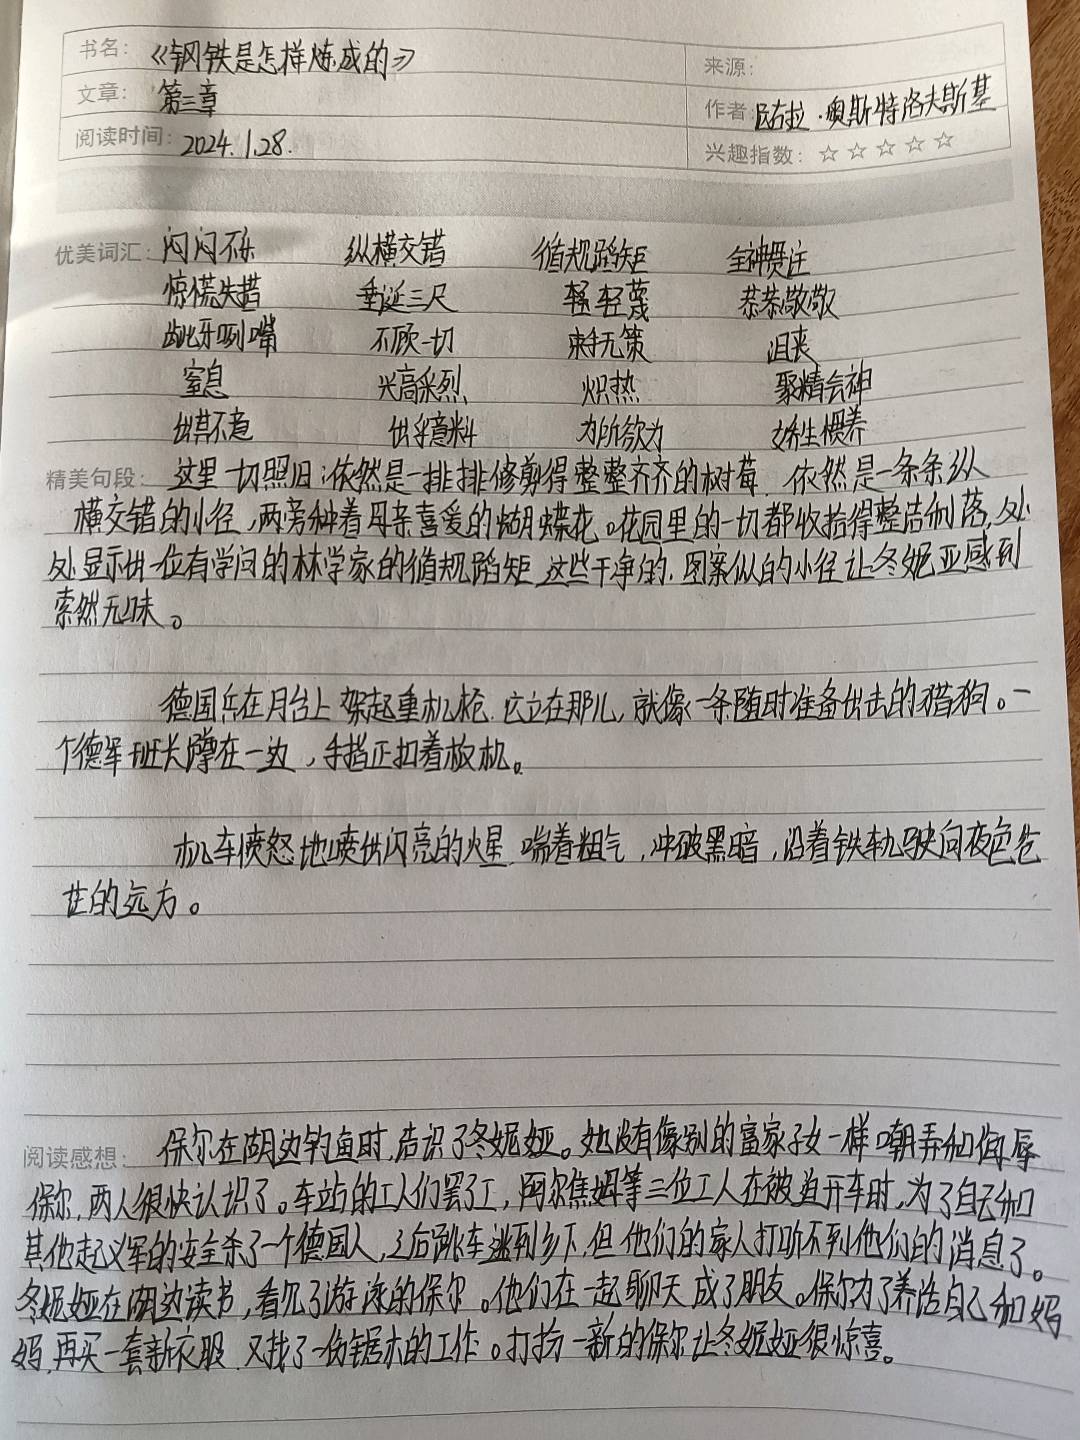 书名: 《钢铁是怎样炼成的》 来源:
文章: 第三章 作者: 尼古拉·奥斯特洛夫斯基
阅读时间: 2024.1.28. 兴趣指数: ☆☆☆☆☆
优美词汇: 闷闷不乐 纵横交错 循规蹈矩 全神贯注
惊慌失措 垂涎三尺 轻轻蔑 恭恭敬敬
龇牙咧嘴 不顾一切 束手无策 沮丧
窒息 兴高采烈 炽热 聚精会神
出其不意 出乎意料 力所欲为 娇生惯养
精美句段: 这里一切照旧;依然是一排排修剪得整整齐齐的树莓,依然是一条条纵
横交错的小径,两旁种着母亲喜爱的蝴蝶花。花园里的一切都收拾得整洁利落,处
处显示出一位有学问的林学家的循规蹈矩,这些干净的,图案似的小径让冬妮亚感到
索然无味。
德国兵在月台上架起重机枪,它立在那儿,就像一条随时准备出击的猎狗。一
个德军班长蹲在一边,手指正扣着板机。
机车愤怒地喷出闪亮的火星,喘着粗气,冲破黑暗,沿着铁轨驶向夜色苍
茫的远方。
阅读感想: 保尔在湖边钓鱼时,结识了冬妮娅。她没有像别的富家子女一样嘲弄和侮辱
保尔,两人很快认识了。车站的工人们罢了工,阿尔焦姆等三位工人在被迫开车时,为了自己和
其他起义军的安全杀了一个德国人,之后跳车逃到乡下,但他们的家人打听不到他们的消息了。
冬妮娅在湖边读书,看见了游泳的保尔。他们在一起聊天成了朋友。保尔为了养活自己和妈
妈,再买一套新衣服,又找了一份锯木的工作。打扮一新的保尔让冬妮娅很惊喜。